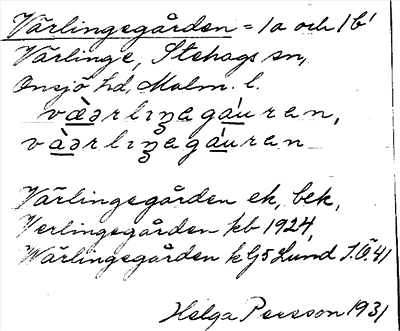 Värlingegården = 1a och 1b¹
Värlinge, Stehags sn,
Onsjö hd, Malm. l.
væ̀ərlıŋagáuran,
vàərlıŋagáuran
Värlingegården ek, bek,
Verlingegården kb 1924,
Wärlingegården kG5 Lund I.Ö.41
Helga Persson 1931